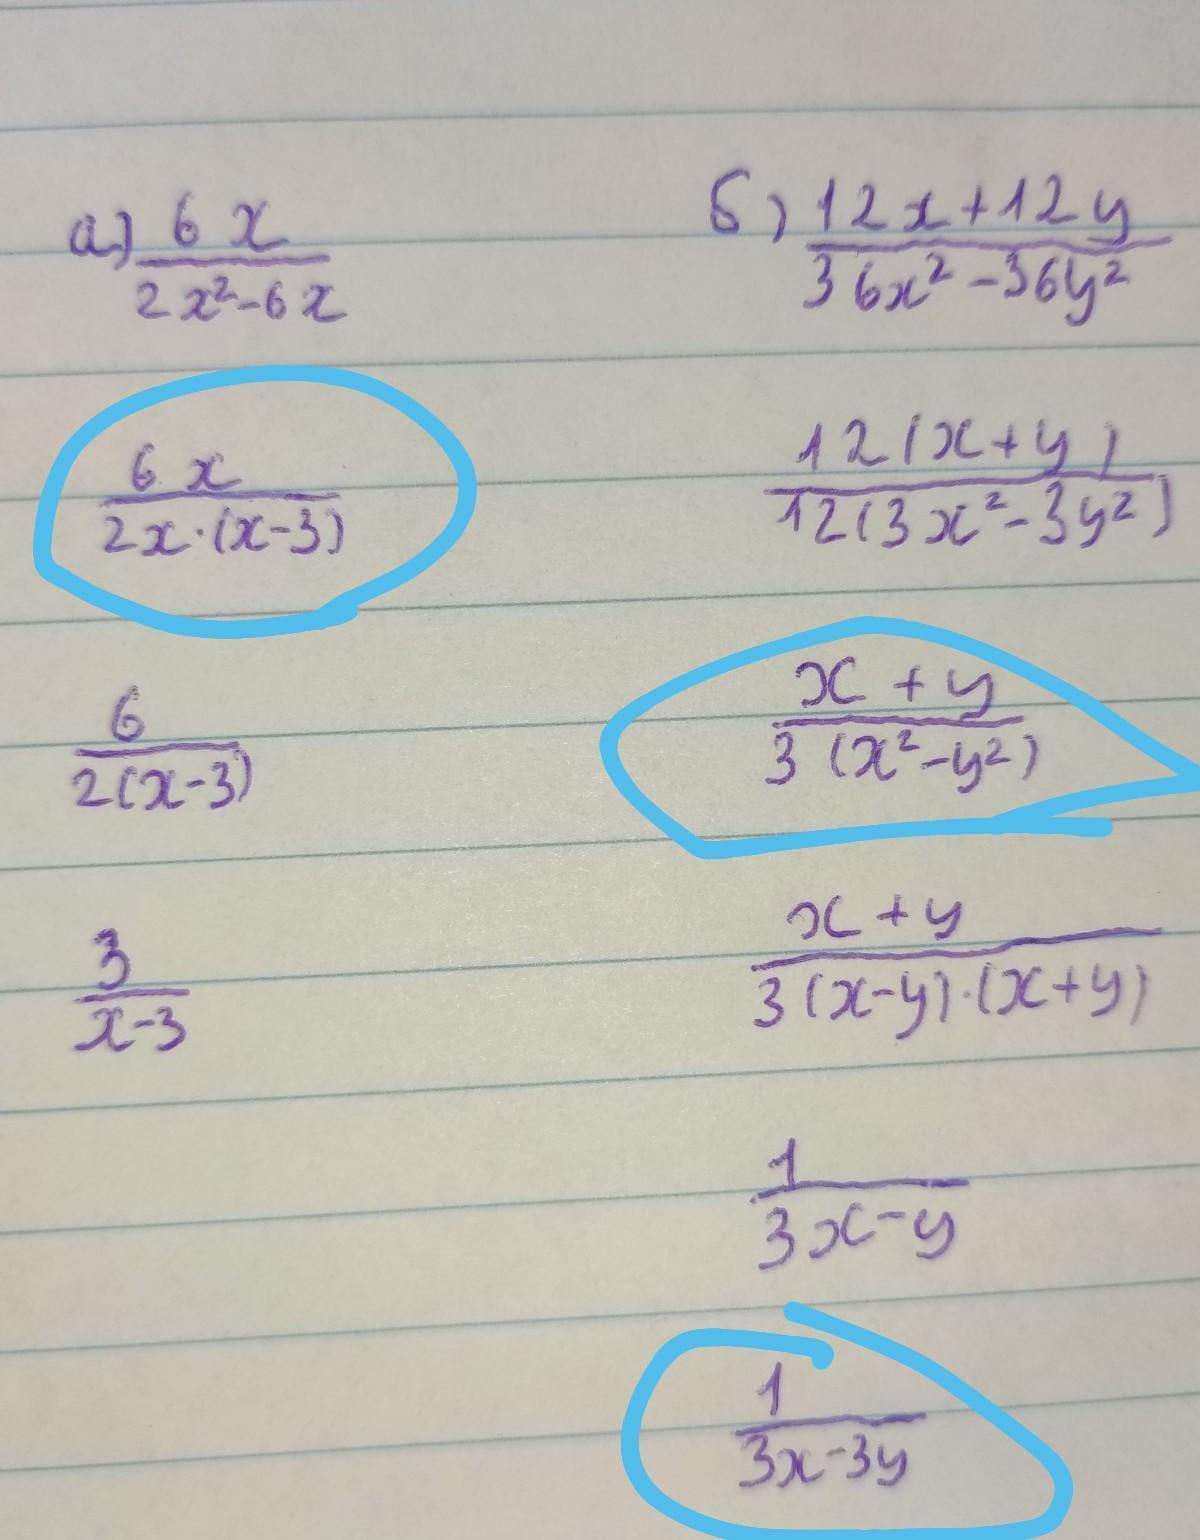 а) 6x
2x²-6x
6x
2x·(x-3)
6
2(x-3)
3
x-3
б) 12x+12y
36x²-36y²
12(x+y)
12(3x²-3y²)
x+y
3(x²-y²)
x+y
3(x-y)·(x+y)
1
3x-y
1
3x-3y